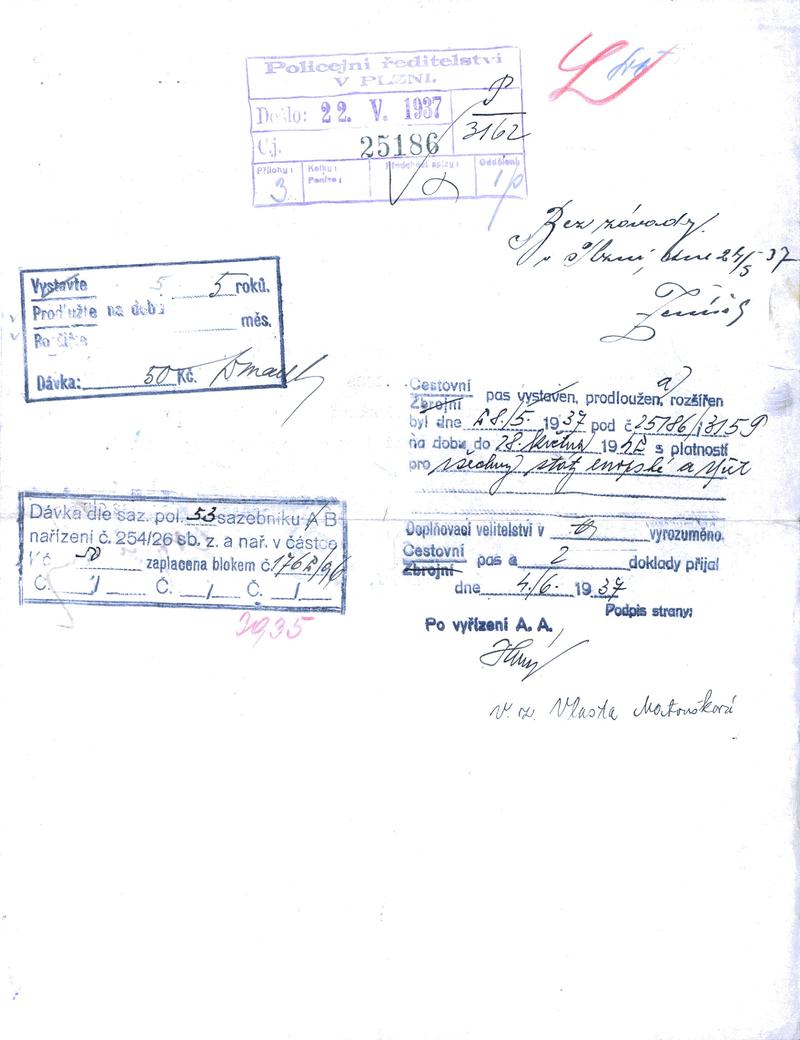 Policejní ředitelství
V PLZNI.
Došlo: 22. V. 1937
P
3162
Čj. 25186
Přílohy: Kolky: Předchozí spisy: Oddělení:
3 Peníze: 1/p
Bez závady.
v Plzni, dne 24/5 37
Vystavte 5 5 roků.
Prodlužte na dobu
měs.
Rozšiřte
Dávka: 50 Kč.
Cestovní
Zbrojní pas vystaven, prodloužen, a) rozšířen
byl dne 28./5. 1937 pod č 25186/3159
na dobu do 28. května 1942 s platností
pro všechny státy evropské a
Dávka dle saz. pol. 53 sazebníku A B
nařízení č. 254/26 sb. z. a nař. v částce
Kč 50 zaplacena blokem č. 1762/96
Č. / Č. / Č. /
3935
Doplňovací velitelství v vyrozuměno
Cestovní
Zbrojní pas a 2 doklady přijal
dne 4./6. 1937
Podpis strany:
Po vyřízení A. A.
v. z. Vlasta Matoušková